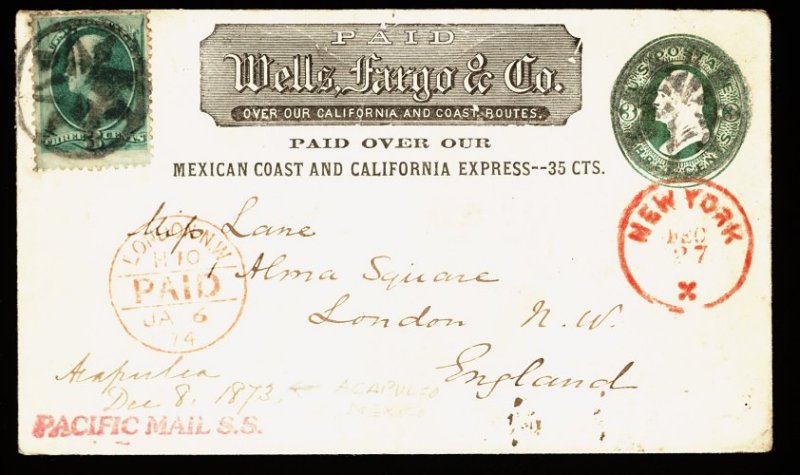 PAID
Wells, Fargo & Co.
OVER OUR CALIFORNIA AND COAST ROUTES.
PAID OVER OUR
MEXICAN COAST AND CALIFORNIA EXPRESS--35 CTS.
THREE 3 CENTS
U.S. POSTAGE
3
NEW YORK
DEC
27
X
Miss Lane
1 Alma Square
London N.W.
England
LONDON.N.W
H 10
PAID
JA 6
74
Acapulco
Dec 8. 1873.
ACAPULCO
MEXICO
PACIFIC MAIL S.S.